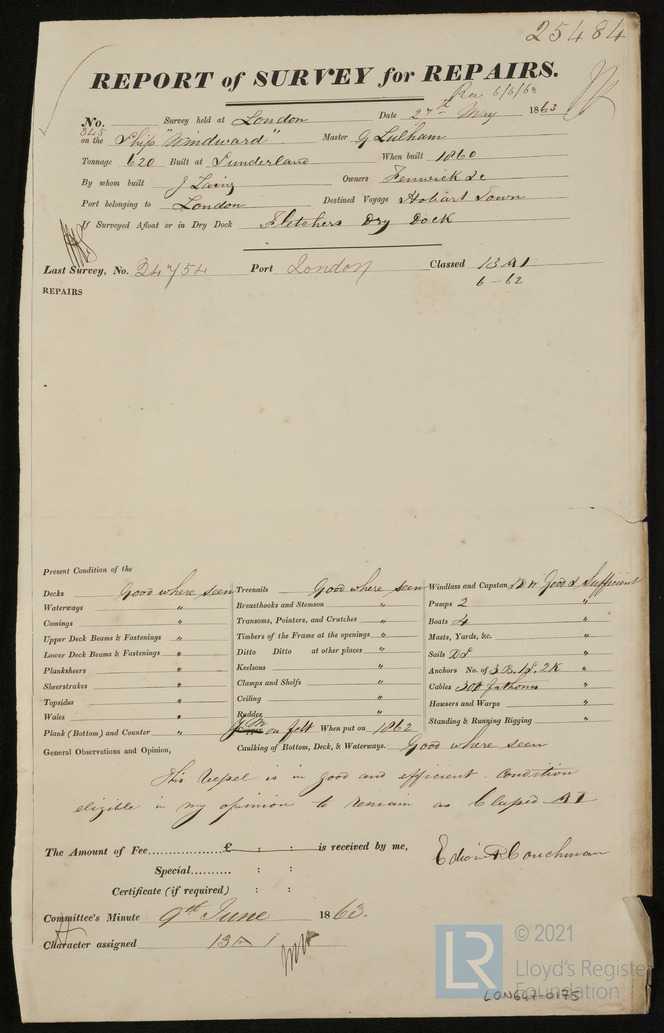 25484
REPORT of SURVEY for REPAIRS.
Rec 6/6/63
No. 345 Survey held at London Date 27th May 1863
on the Ship "Windward" Master G Lulham
Tonnage 620 Built at Sunderland When built 1860
By whom built J Laing Owners Fenwick &c
Port belonging to London Destined Voyage Hobart Town
If Surveyed Afloat or in Dry Dock Fletchers Dry Dock
Last Survey, No. 24754 Port London Classed 13 A1
6-62
REPAIRS
Present Condition of the
Decks Good where seen Treenails Good where seen Windlass and Capstan Good & Sufficient
Waterways " Breasthooks and Stemson " Pumps 2 "
Comings " Transoms, Pointers, and Crutches " Boats 4 "
Upper Deck Beams & Fastenings " Timbers of the Frame at the openings " Masts, Yards, &c. "
Lower Deck Beams & Fastenings " Ditto Ditto at other places " Sails "
Planksheers " Keelsons " Anchors No. of 3 B. 1 S. 2 K "
Sheerstrakes " Clamps and Shelfs " Cables 300 fathoms "
Topsides " Ceiling " Hausers and Warps "
Wales " Rudder " Standing & Running Rigging "
Plank (Bottom) and Counter " Y.M. on felt When put on 1862
General Observations and Opinion, Caulking of Bottom, Deck, & Waterways. Good where seen
This Vessel is in good and efficient condition
eligible in my opinion to remain as Classed A1
The Amount of Fee.................£ : : is received by me,
Edwin R Couchman
Special.......... : :
Certificate (if required) : :
Committee's Minute 9th June 1863.
Character assigned 13 A 1
LR
© 2021
Lloyd's Register
Foundation
LON647-0175